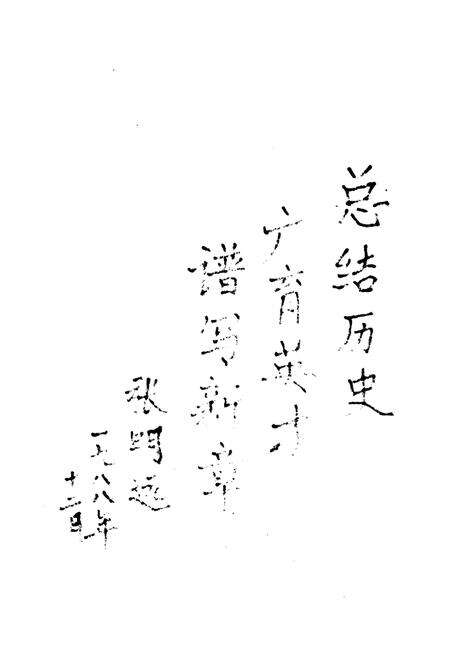 总结历史
广育英才
谱写新章
张明远
一九八八年
十二月